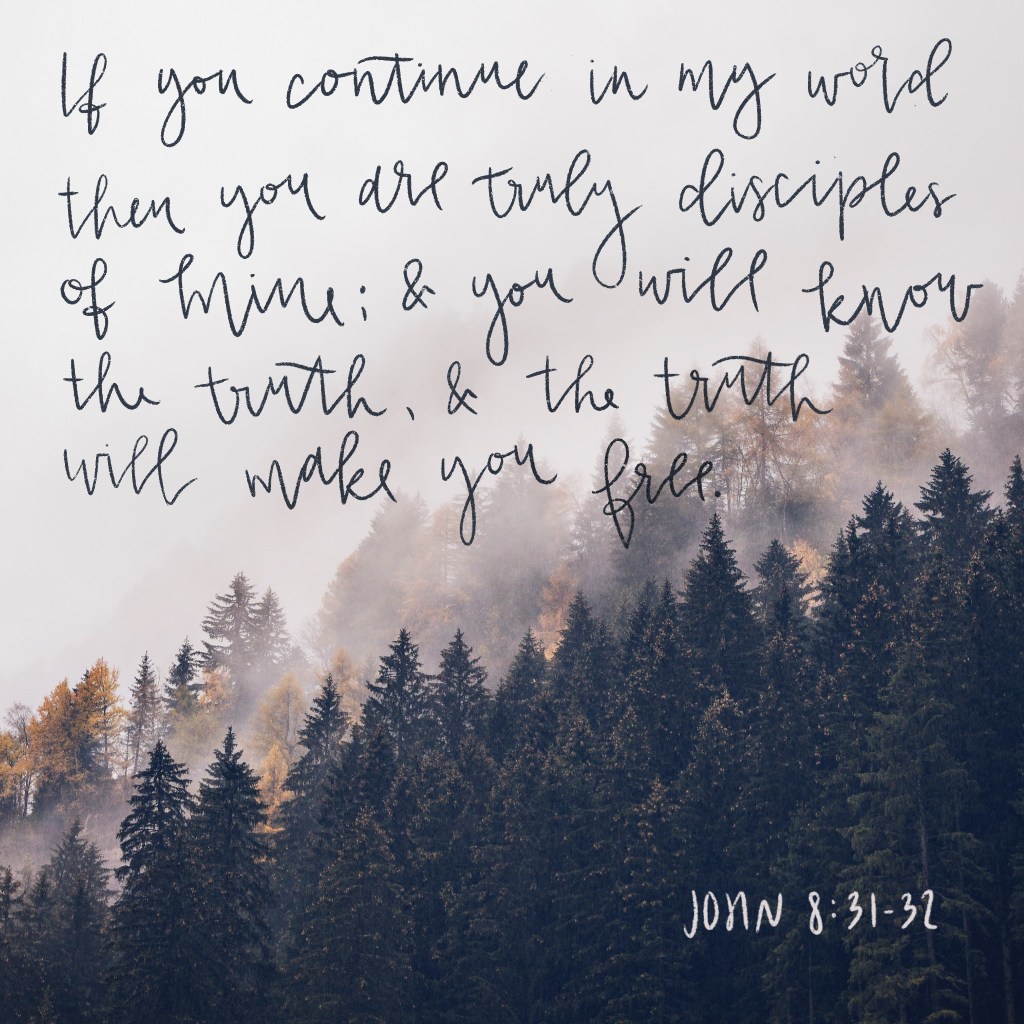 If you continue in my word
then you are truly disciples
of Mine; & you will know
the truth, & the truth
will make you free.
JOHN 8:31-32